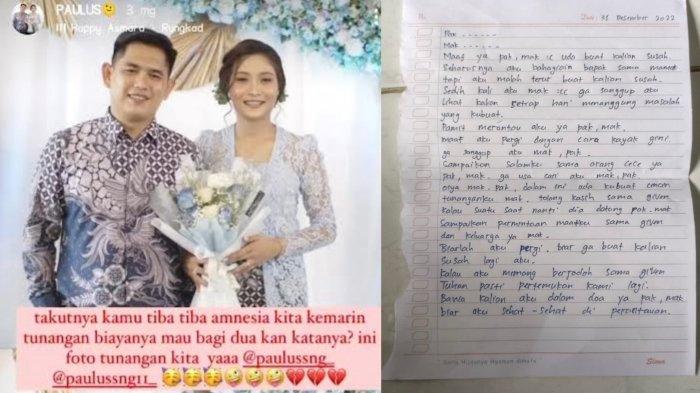 PAULUS🫠 3 mg
Happy Asmara · Rungkad
takutnya kamu tiba tiba amnesia kita kemarin
tunangan biayanya mau bagi dua kan katanya? ini
foto tunangan kita yaaa @paulussng_
@paulussng11_ 🥳🥳🥳🤪🤪🤪💔💔💔
No.
31 Desember 2022
Pak ......
Mak ......
Maaf ya pak, mak :c udo buat kalian susah.
Seharusnya aku bahagiain bapak sama mamak
tapi aku malah terus buat kalian susah.
Sedih kali aku mak :cc ga sanggup aku
lihat kalian setiap hari menanggung masalah
yang kubuat.
Pamit merantau aku ya pak, mak.
maaf aku pergi dengan cara kayak gini.
ga sanggup aku mak, pak.
Sampaikan salamku sama orang cece ya
pak, mak. ga usa cari aku mak, pak.
oiya mak, pak, dalam ini ada kubuat cincin
tunanganku mak. tolong kasih sama given
kalau suatu saat nanti dia datang pak, mak
Sampaikan permintaan maafku sama given
dan keluarga ya mak.
Biarlah aku pergi. biar ga buat kalian
susah lagi aku.
kalau aku memang berjodoh sama given
Tuhan pasti pertemukan kami lagi.
Bawa kalian aku dalam doa ya pak, mak
biar aku sehat-sehat di perantauan.